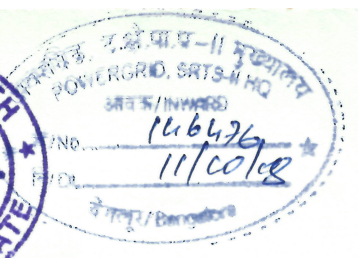 पावरग्रिड, द.क्षे.पा.प-II मुख्यालय
POWERGRID, SRTS-II HQ
आवक/INWARD
146476
11/10/
बेंगलूर/Bangalore
TH
ATE